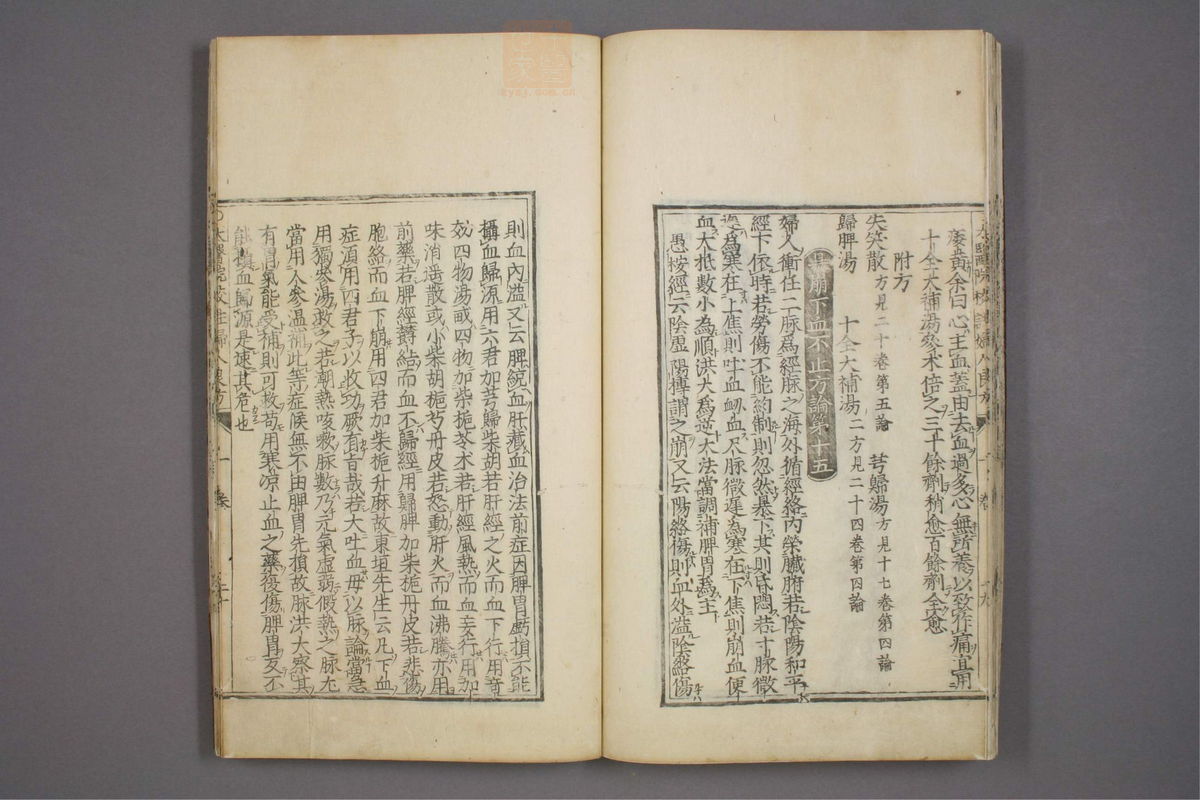 痿黃余曰心主血蓋由去血過多心無所養以致作痛宜用
十全大補湯參朮倍之三十餘劑稍愈百餘劑全愈
附方
失笑散方見二十卷第五論 芎歸湯方見十七卷第四論
歸脾湯 十全大補湯二方見二十四卷第四論
崩下血不止方論第十五
婦人衝任二脉爲經脉之海外循經絡內榮臟腑若陰陽和平
經下依時若勞傷不能約制則忽然暴下甚則昏悶若寸脉微
遲爲寒在上焦則吐血衂血尺脉微遲爲寒在下焦則崩血便
血大抵數小為順洪大爲逆大法當調補脾胃爲主
愚按經云陰虛陽搏謂之崩又云陽絡傷則血外溢陰絡傷
則血內溢又云脾統血肝藏血治法前症因脾胃虧損不能
攝血歸源用六君加芎歸柴胡若肝經之火而血下行用奇
効四物湯或四物加柴梔苓朮若肝經風熱而血妄行用加
味消遙散或小柴胡梔芍丹皮若怒動肝火而血沸騰亦用
前藥若脾經鬱結而血不歸經用歸脾加柴梔丹皮若悲傷
胞絡而血下崩用四君加柴梔升麻故東垣先生云凡下血
症須用四君子以收功厥有旨哉若大吐血毋以脉論當急
用獨參湯救之若潮熱咳嗽脉數乃元氣虛弱假熱之脉尤
當用人參溫補此等症候無不由脾胃先損故脉洪大察其
有胃氣能受補則可救苟用寒凉止血之藥復傷脾胃反不
能攝血歸源是速其危也
太醫院校註婦人良方